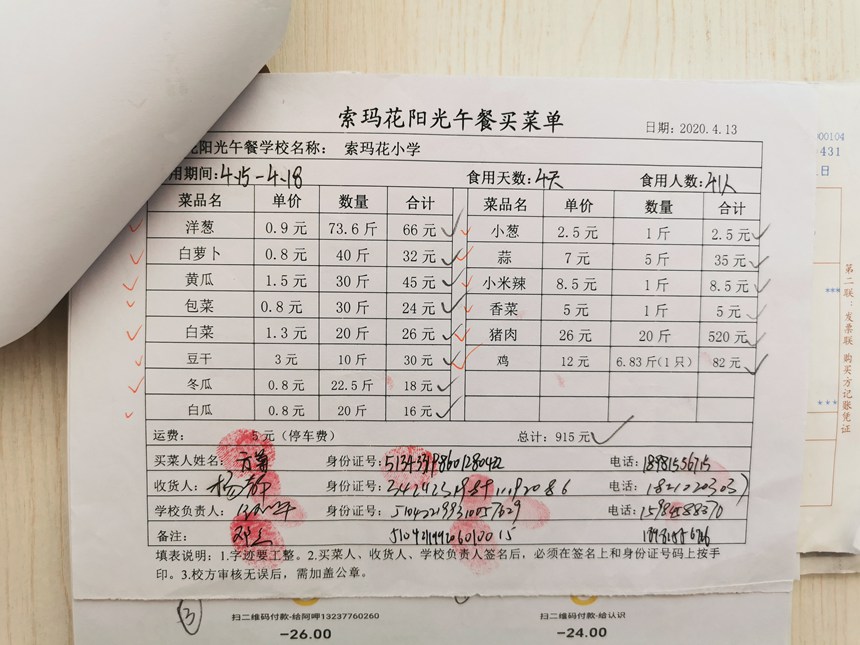 索玛花阳光午餐买菜单
日期: 2020.4.13
阳光午餐学校名称: 索玛花小学
用期间: 4.15-4.18 食用天数: 4天 食用人数: 41人
菜品名 单价 数量 合计 菜品名 单价 数量 合计
洋葱 0.9 元 73.6 斤 66 元 小葱 2.5 元 1 斤 2.5 元
白萝卜 0.8 元 40 斤 32 元 蒜 7 元 5 斤 35 元
黄瓜 1.5 元 30 斤 45 元 小米辣 8.5 元 1 斤 8.5 元
包菜 0.8 元 30 斤 24 元 香菜 5 元 1 斤 5 元
白菜 1.3 元 20 斤 26 元 猪肉 26 元 20 斤 520 元
豆干 3 元 10 斤 30 元 鸡 12 元 6.83 斤(1 只) 82 元
冬瓜 0.8 元 22.5 斤 18 元
白瓜 0.8 元 20 斤 16 元
运费: 5 元（停车费） 总计: 915 元
买菜人姓名: 身份证号: 电话:
收货人: 杨静 身份证号: 电话:
学校负责人: 身份证号: 电话:
备注:
填表说明: 1.字迹要工整。2.买菜人、收货人、学校负责人签名后，必须在签名上和身份证号码上按手
印。3.校方审核无误后，需加盖公章。
③
扫二维码付款-给阿呷13237760260 扫二维码付款-给认识
-26.00 -24.00
00104
431
日
***
***
第二联：发票联 购买方记账凭证